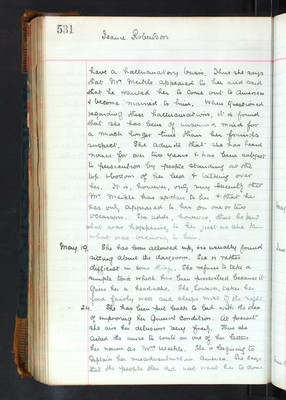 531
Jeanie Robertson
have a hallucinatory basis. Thus she says
that Mr. Meikle appeared to her and said
that he wanted her to come out to America
& become married to him. When questioned
regarding these hallucinations, it is found
that she has been of unsound mind for
a much longer time than her friends
suspect. She admits that she has heard
voices for over two years & has been subject
to persecution by people standing at the
top & bottom of her bed & talking over
her. It is, however, only very recently that
Mr. Meikle has spoken to her & that he
has only appeared to her on one or two
occasions. She adds, however, that he
what was happening to her just as she knew
what was occurring to him
May. 19. She has been allowed up, is usually found
sitting about the dayroom. She is rather
difficult in some things. She refuses to take a
simple tonic which has been prescribed because it
gives her a headache. She, however, takes her
food fairly well and sleeps most of the night
24. She has been put back to bed with the idea
of improving her general condition. At present
she airs her delusions very freely. Thus she
asked the nurse to write on one of her letters
her name as Mrs Meikle. She is beginning to
explain her misadventure in America. She says
that the people there did not want her to come